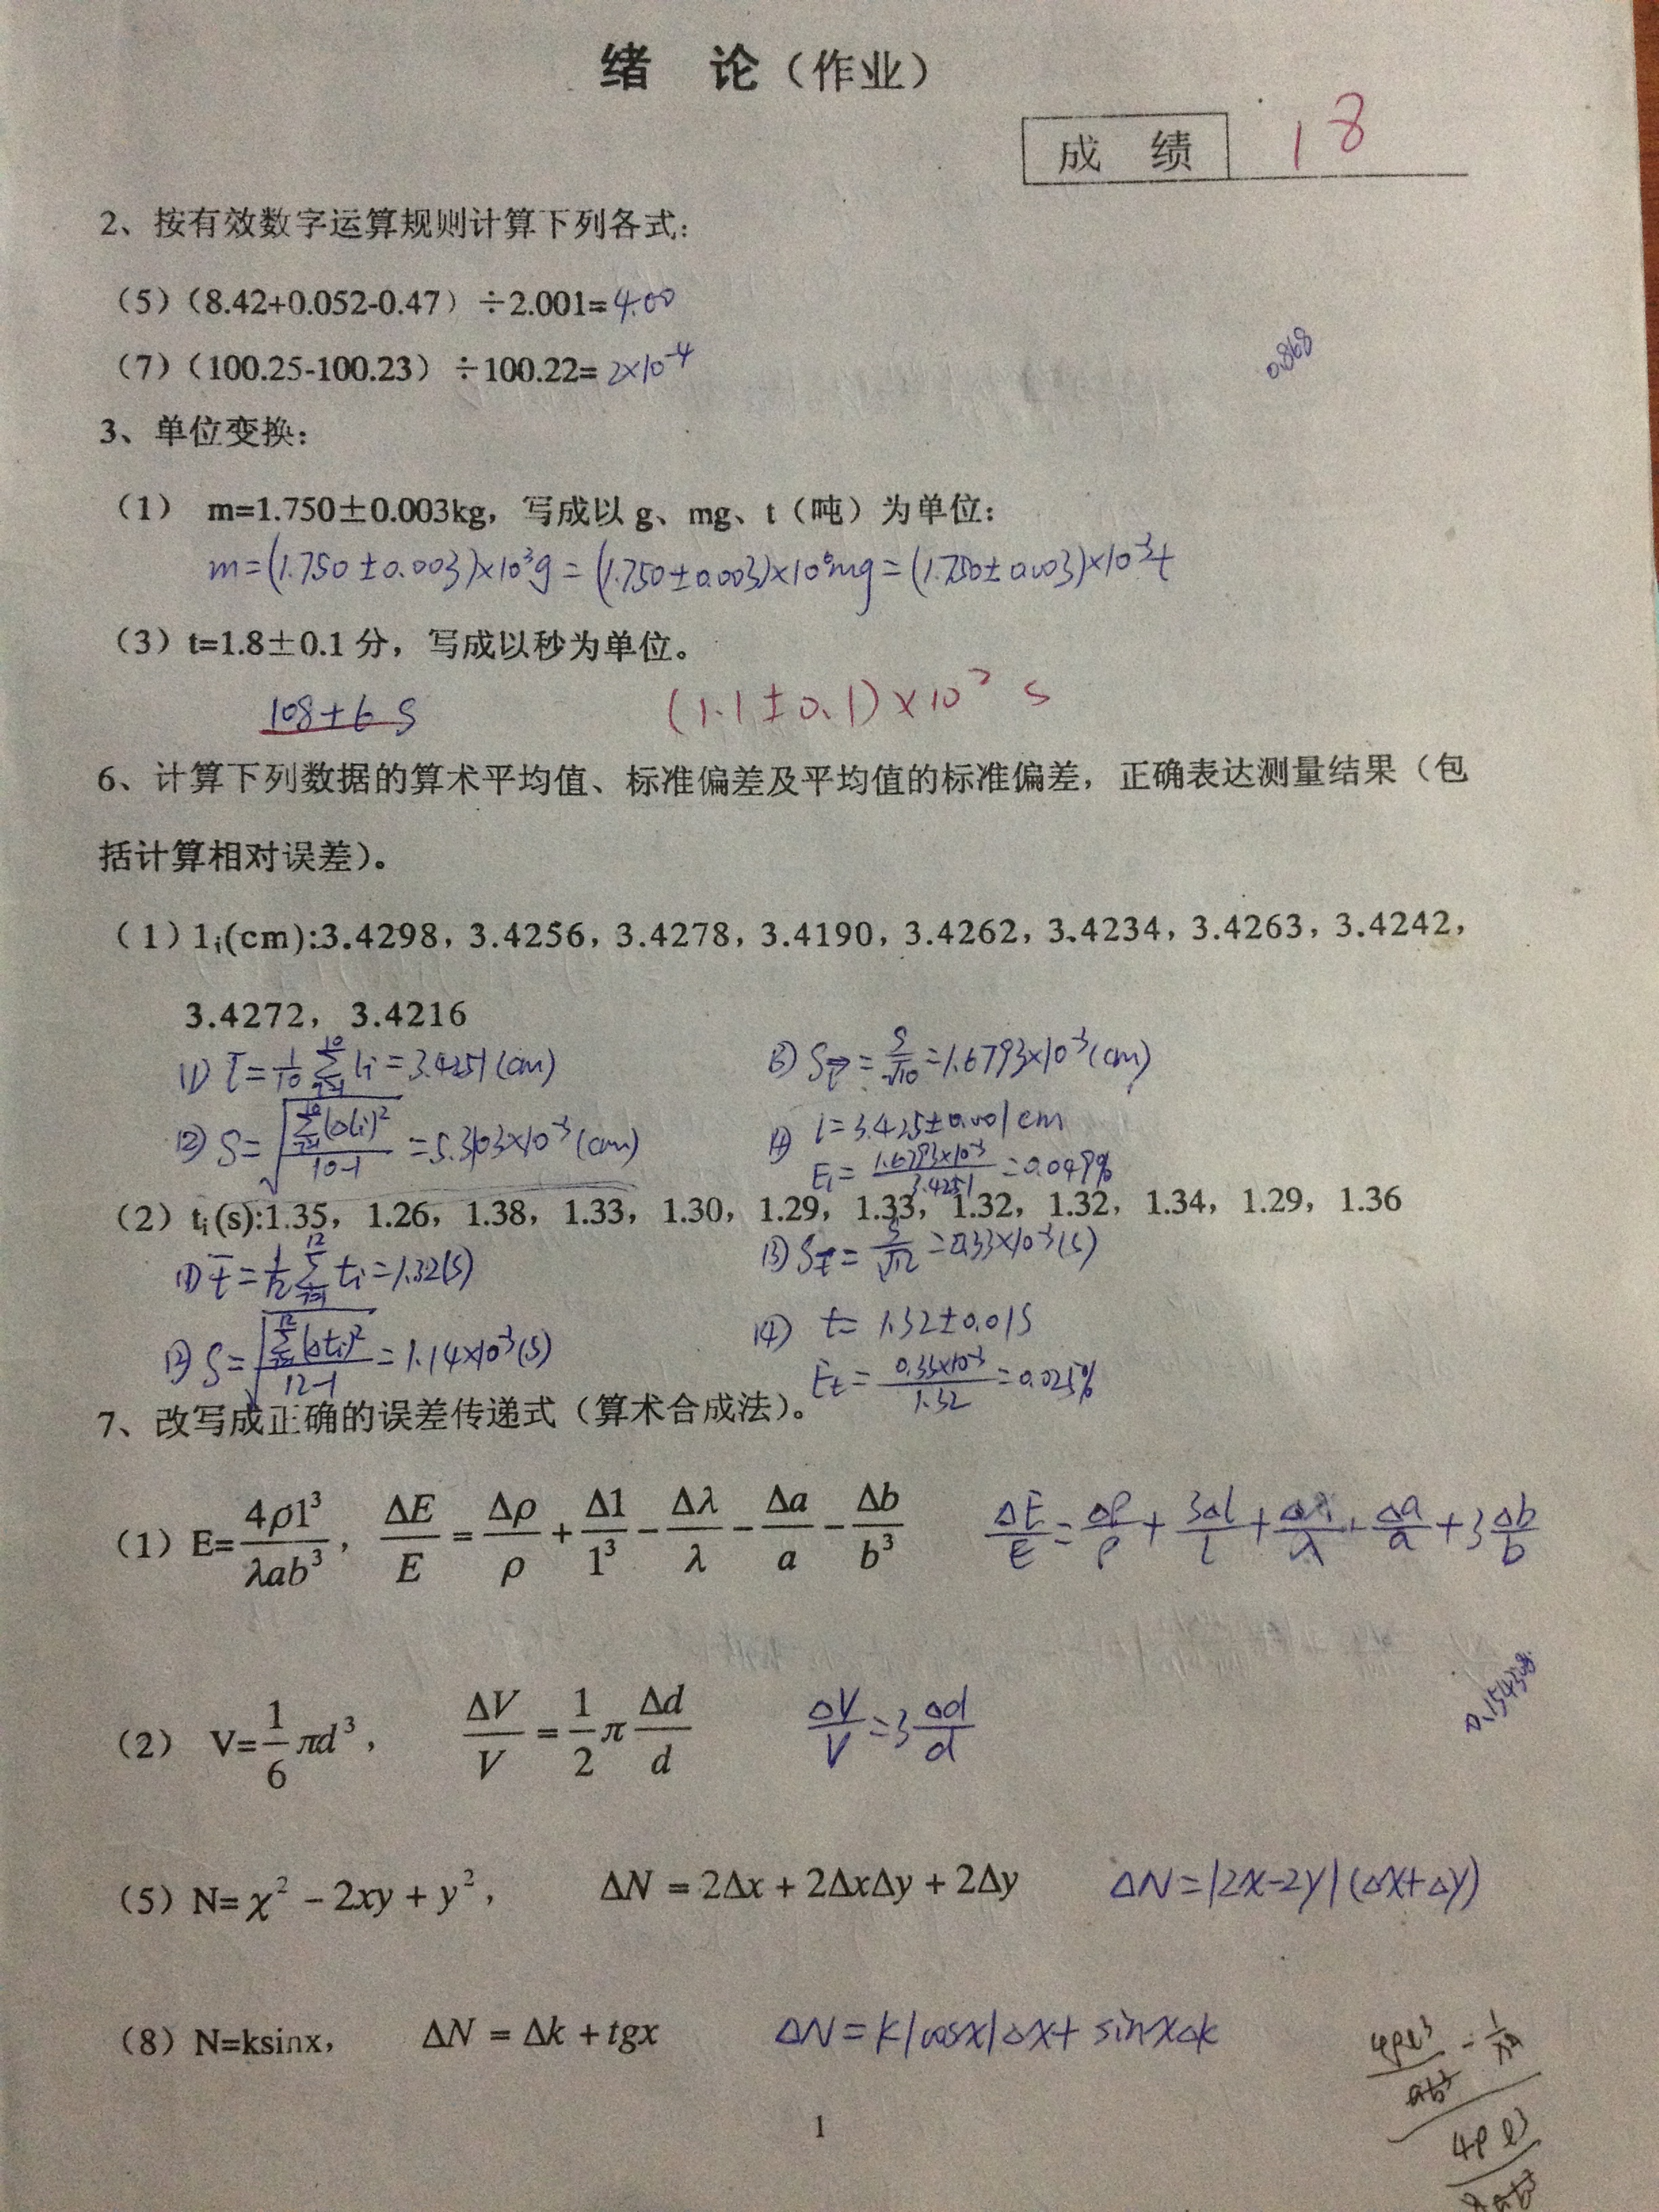 绪 论（作业）
成 绩 18
2、按有效数字运算规则计算下列各式：
（5）（8.42+0.052-0.47）÷2.001=4.00
（7）（100.25-100.23）÷100.22= 2×10⁻⁴
0.868
3、单位变换：
（1） m=1.750±0.003kg，写成以 g、mg、t（吨）为单位：
m=(1.750±0.003)×10³g=(1.750±0.003)×10⁶mg=(1.750±0.003)×10⁻³t
（3）t=1.8±0.1 分，写成以秒为单位。
108±6 S (1.1±0.1)×10² s
6、计算下列数据的算术平均值、标准偏差及平均值的标准偏差，正确表达测量结果（包
括计算相对误差）。
（1）l_i(cm):3.4298，3.4256，3.4278，3.4190，3.4262，3.4234，3.4263，3.4242，
3.4272，3.4216
(1) l̄=1/10 Σ(i=1→10) li=3.4251(cm) (3) S_l̄=S/√10=1.6793×10⁻³(cm)
(2) S=√(Σ(i=1→10)(Δli)²/(10-1))=5.3103×10⁻³(cm) (4) l=3.425±0.001cm
El=1.6793×10⁻³/3.4251=0.049%
（2）t_i(s):1.35，1.26，1.38，1.33，1.30，1.29，1.33，1.32，1.32，1.34，1.29，1.36
(1) t̄=1/12 Σ(i=1→12) ti=1.32(s) (3) S_t̄=S/√12=0.33×10⁻³(s)
(2) S=√(Σ(i=1→12)(Δti)²/(12-1))=1.14×10⁻³(s) (4) t=1.32±0.01S
Et=0.33×10⁻³/1.32=0.025%
7、改写成正确的误差传递式（算术合成法）。
（1）E=4ρl³/λab³， ΔE/E=Δρ/ρ+Δl/l³−Δλ/λ−Δa/a−Δb/b³ ΔE/E=Δρ/ρ+3Δl/l+Δλ/λ+Δa/a+3Δb/b
（2） V=1/6 πd³， ΔV/V=1/2 π Δd/d ΔV/V=3Δd/d
（5）N=χ²−2xy+y²， ΔN=2Δx+2ΔxΔy+2Δy ΔN=|2x-2y|(Δx+Δy)
（8）N=ksinx， ΔN=Δk+tgx ΔN=k|cosx|Δx+sinxΔk
1